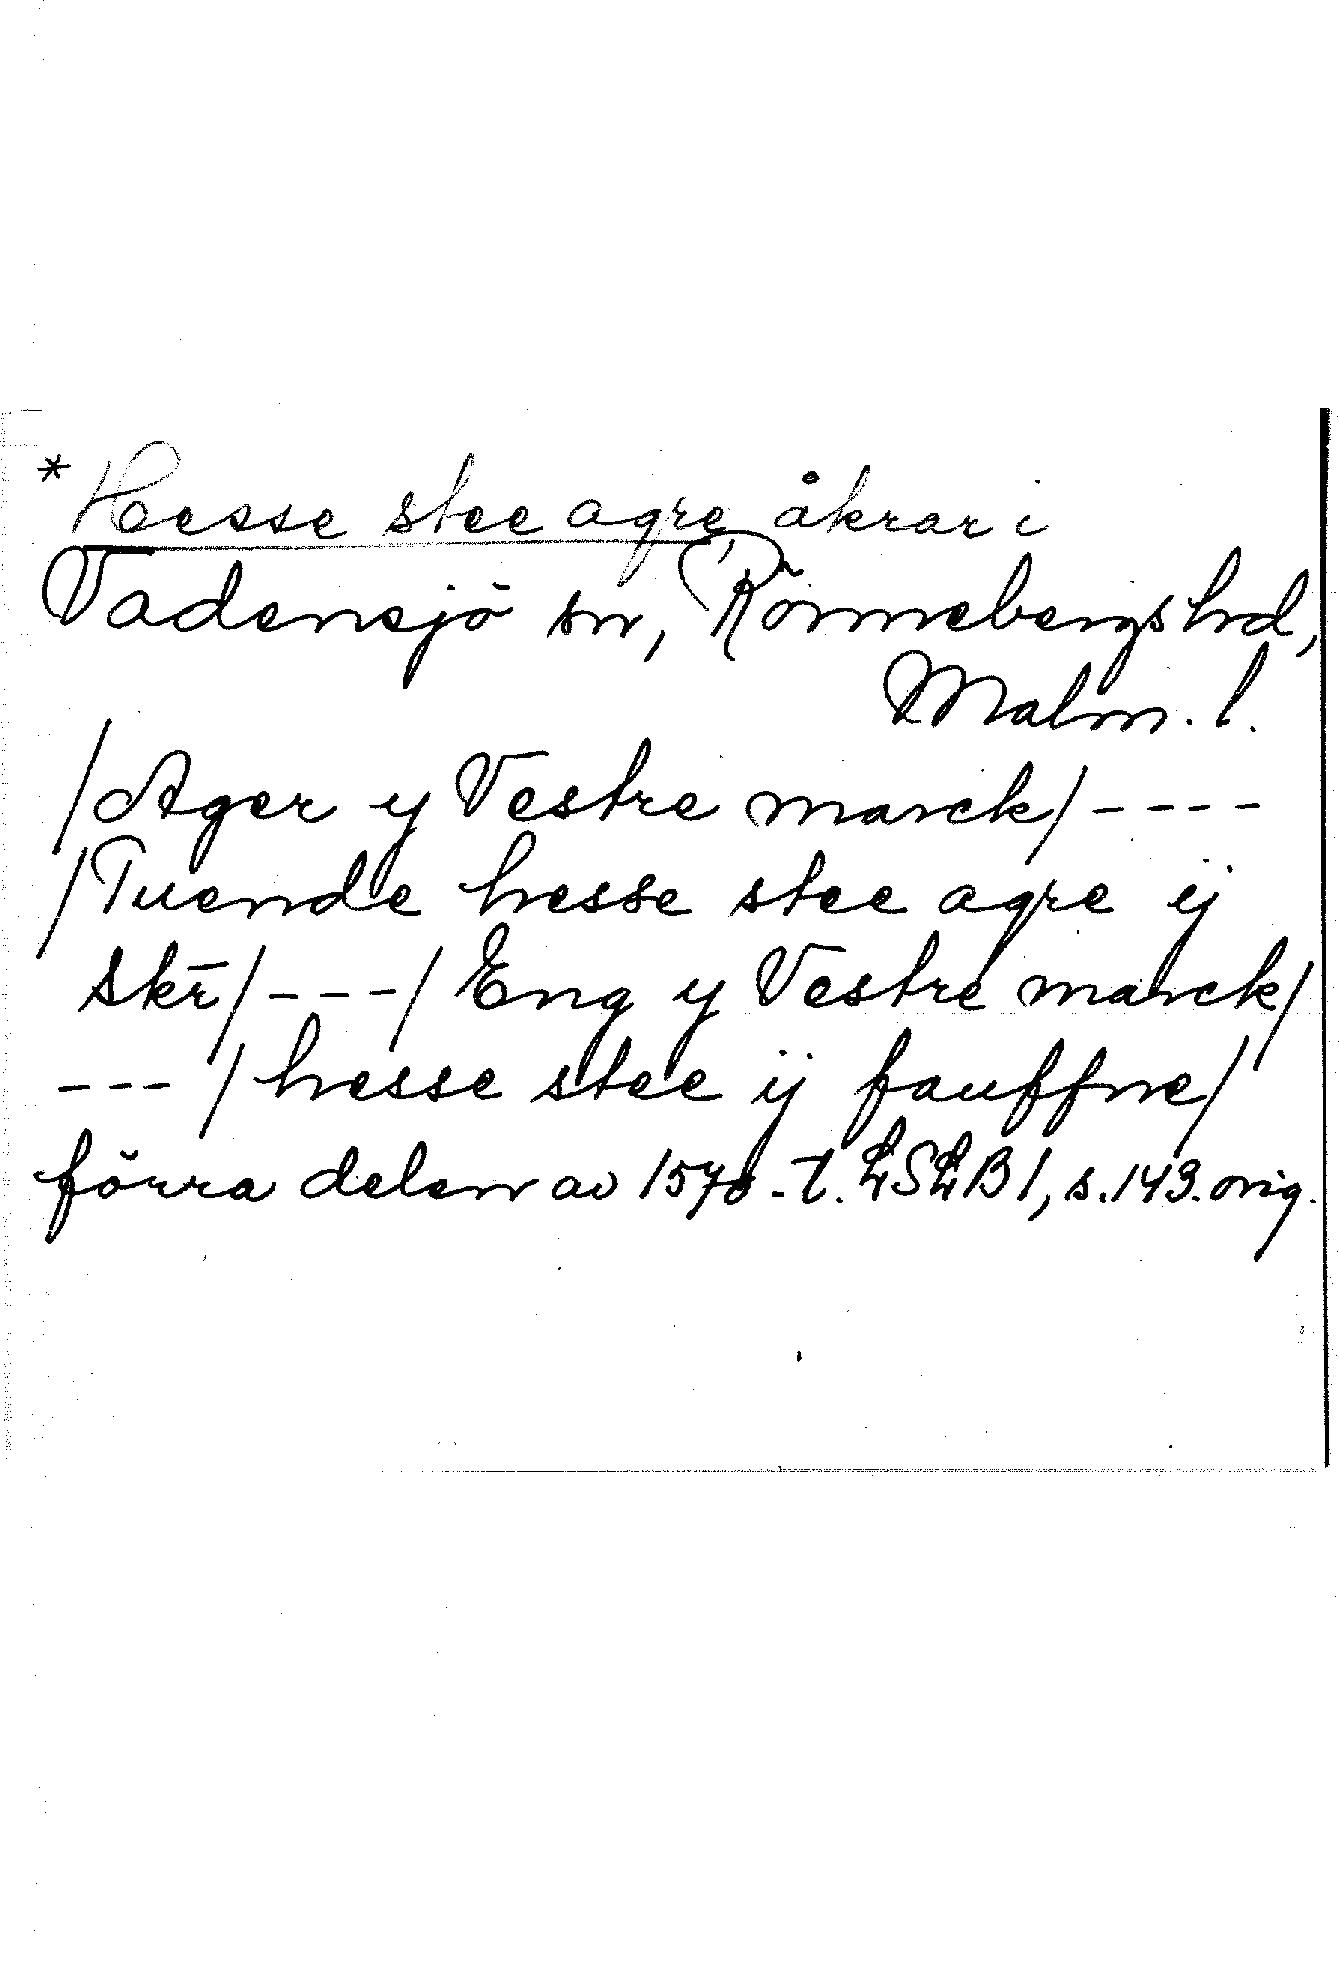 *Hesse stee agre åkrar i
Vadensjö sn, Rönnebergs hd,
Malm. l.
/Ager y Vestre marck/ ----
/Tuende hesse stee agre ij
skr̄/ ---/ Eng y Vestre marck/
--- /hesse stee ij fauffne/
förra delen av 1570-t. LSLB1, s. 143. orig.